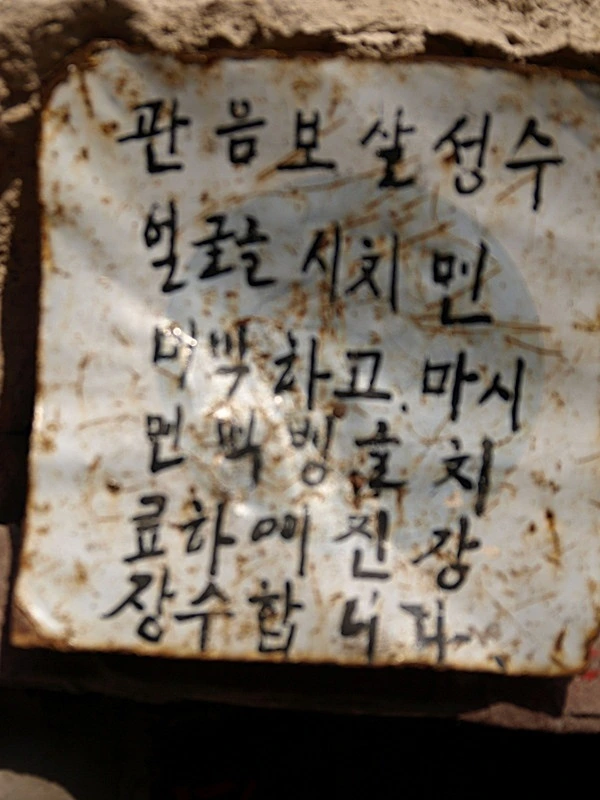 관음보살성수
얼굴글 시치면
미백하고, 마시
면 백병을 치
료하여 진장
장수합니다